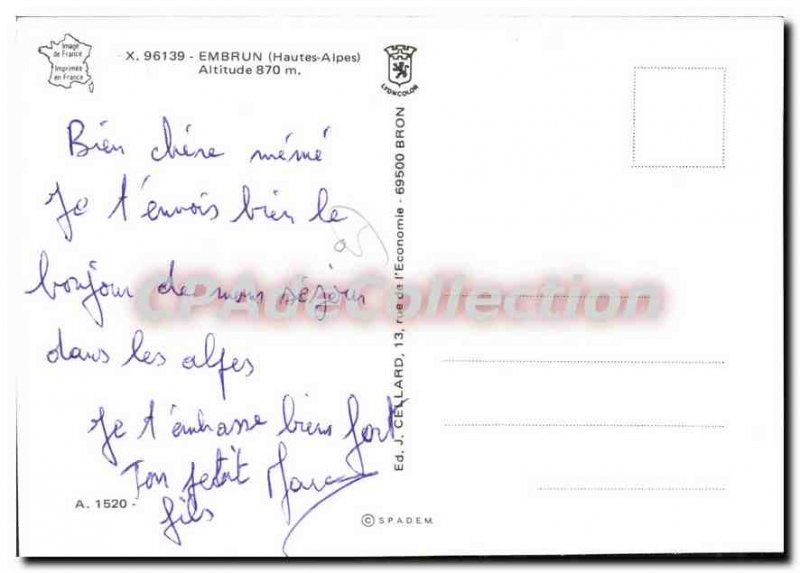 Image
de France
Imprimée
en France
X. 96139 - EMBRUN (Hautes-Alpes)
Altitude 870 m.
LYONCOLOR
Bien chère mémé
Je t'envois bien le
bonjour de mon séjour
dans les alpes
Je t'embrasse bien fort
Ton petit Marc
fils
A. 1520 -
Ed. J. CELLARD, 13, rue de l'Economie - 69500 BRON
© S.P.A.D.E.M.
CPAdeCollection